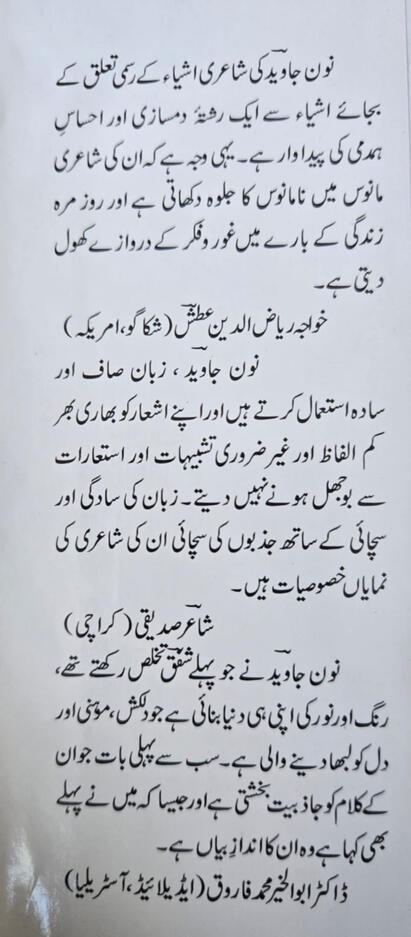 نون جاویدؔ کی شاعری اشیاء کے رسمی تعلق کے
بجائے اشیاء سے ایک رشتۂ دمسازی اور احساسِ
ہمدمی کی پیداوار ہے۔ یہی وجہ ہے کہ ان کی شاعری
مانوس میں نامانوس کا جلوہ دکھاتی ہے اور روز مرہ
زندگی کے بارے میں غور و فکر کے دروازے کھول
دیتی ہے۔
خواجہ ریاض الدین عطشؔ (شکاگو، امریکہ)
نون جاویدؔ ، زبان صاف اور
سادہ استعمال کرتے ہیں اور اپنے اشعار کو بھاری بھر
کم الفاظ اور غیر ضروری تشبیہات اور استعارات
سے بوجھل ہونے نہیں دیتے۔ زبان کی سادگی اور
سچائی کے ساتھ جذبوں کی سچائی ان کی شاعری کی
نمایاں خصوصیات ہیں۔
شاعرؔ صدیقی (کراچی)
نون جاویدؔ نے جو پہلے شفقؔ تخلص رکھتے تھے،
رنگ اور نور کی اپنی ہی دنیا بنائی ہے جو دلکش، موہنی اور
دل کو لبھا دینے والی ہے۔ سب سے پہلی بات جو ان
کے کلام کو جاذبیت بخشتی ہے اور جیسا کہ میں نے پہلے
بھی کہا ہے وہ ان کا اندازِ بیاں ہے۔
ڈاکٹر ابوالخیر محمد فاروق (ایڈیلائیڈ، آسٹریلیا)